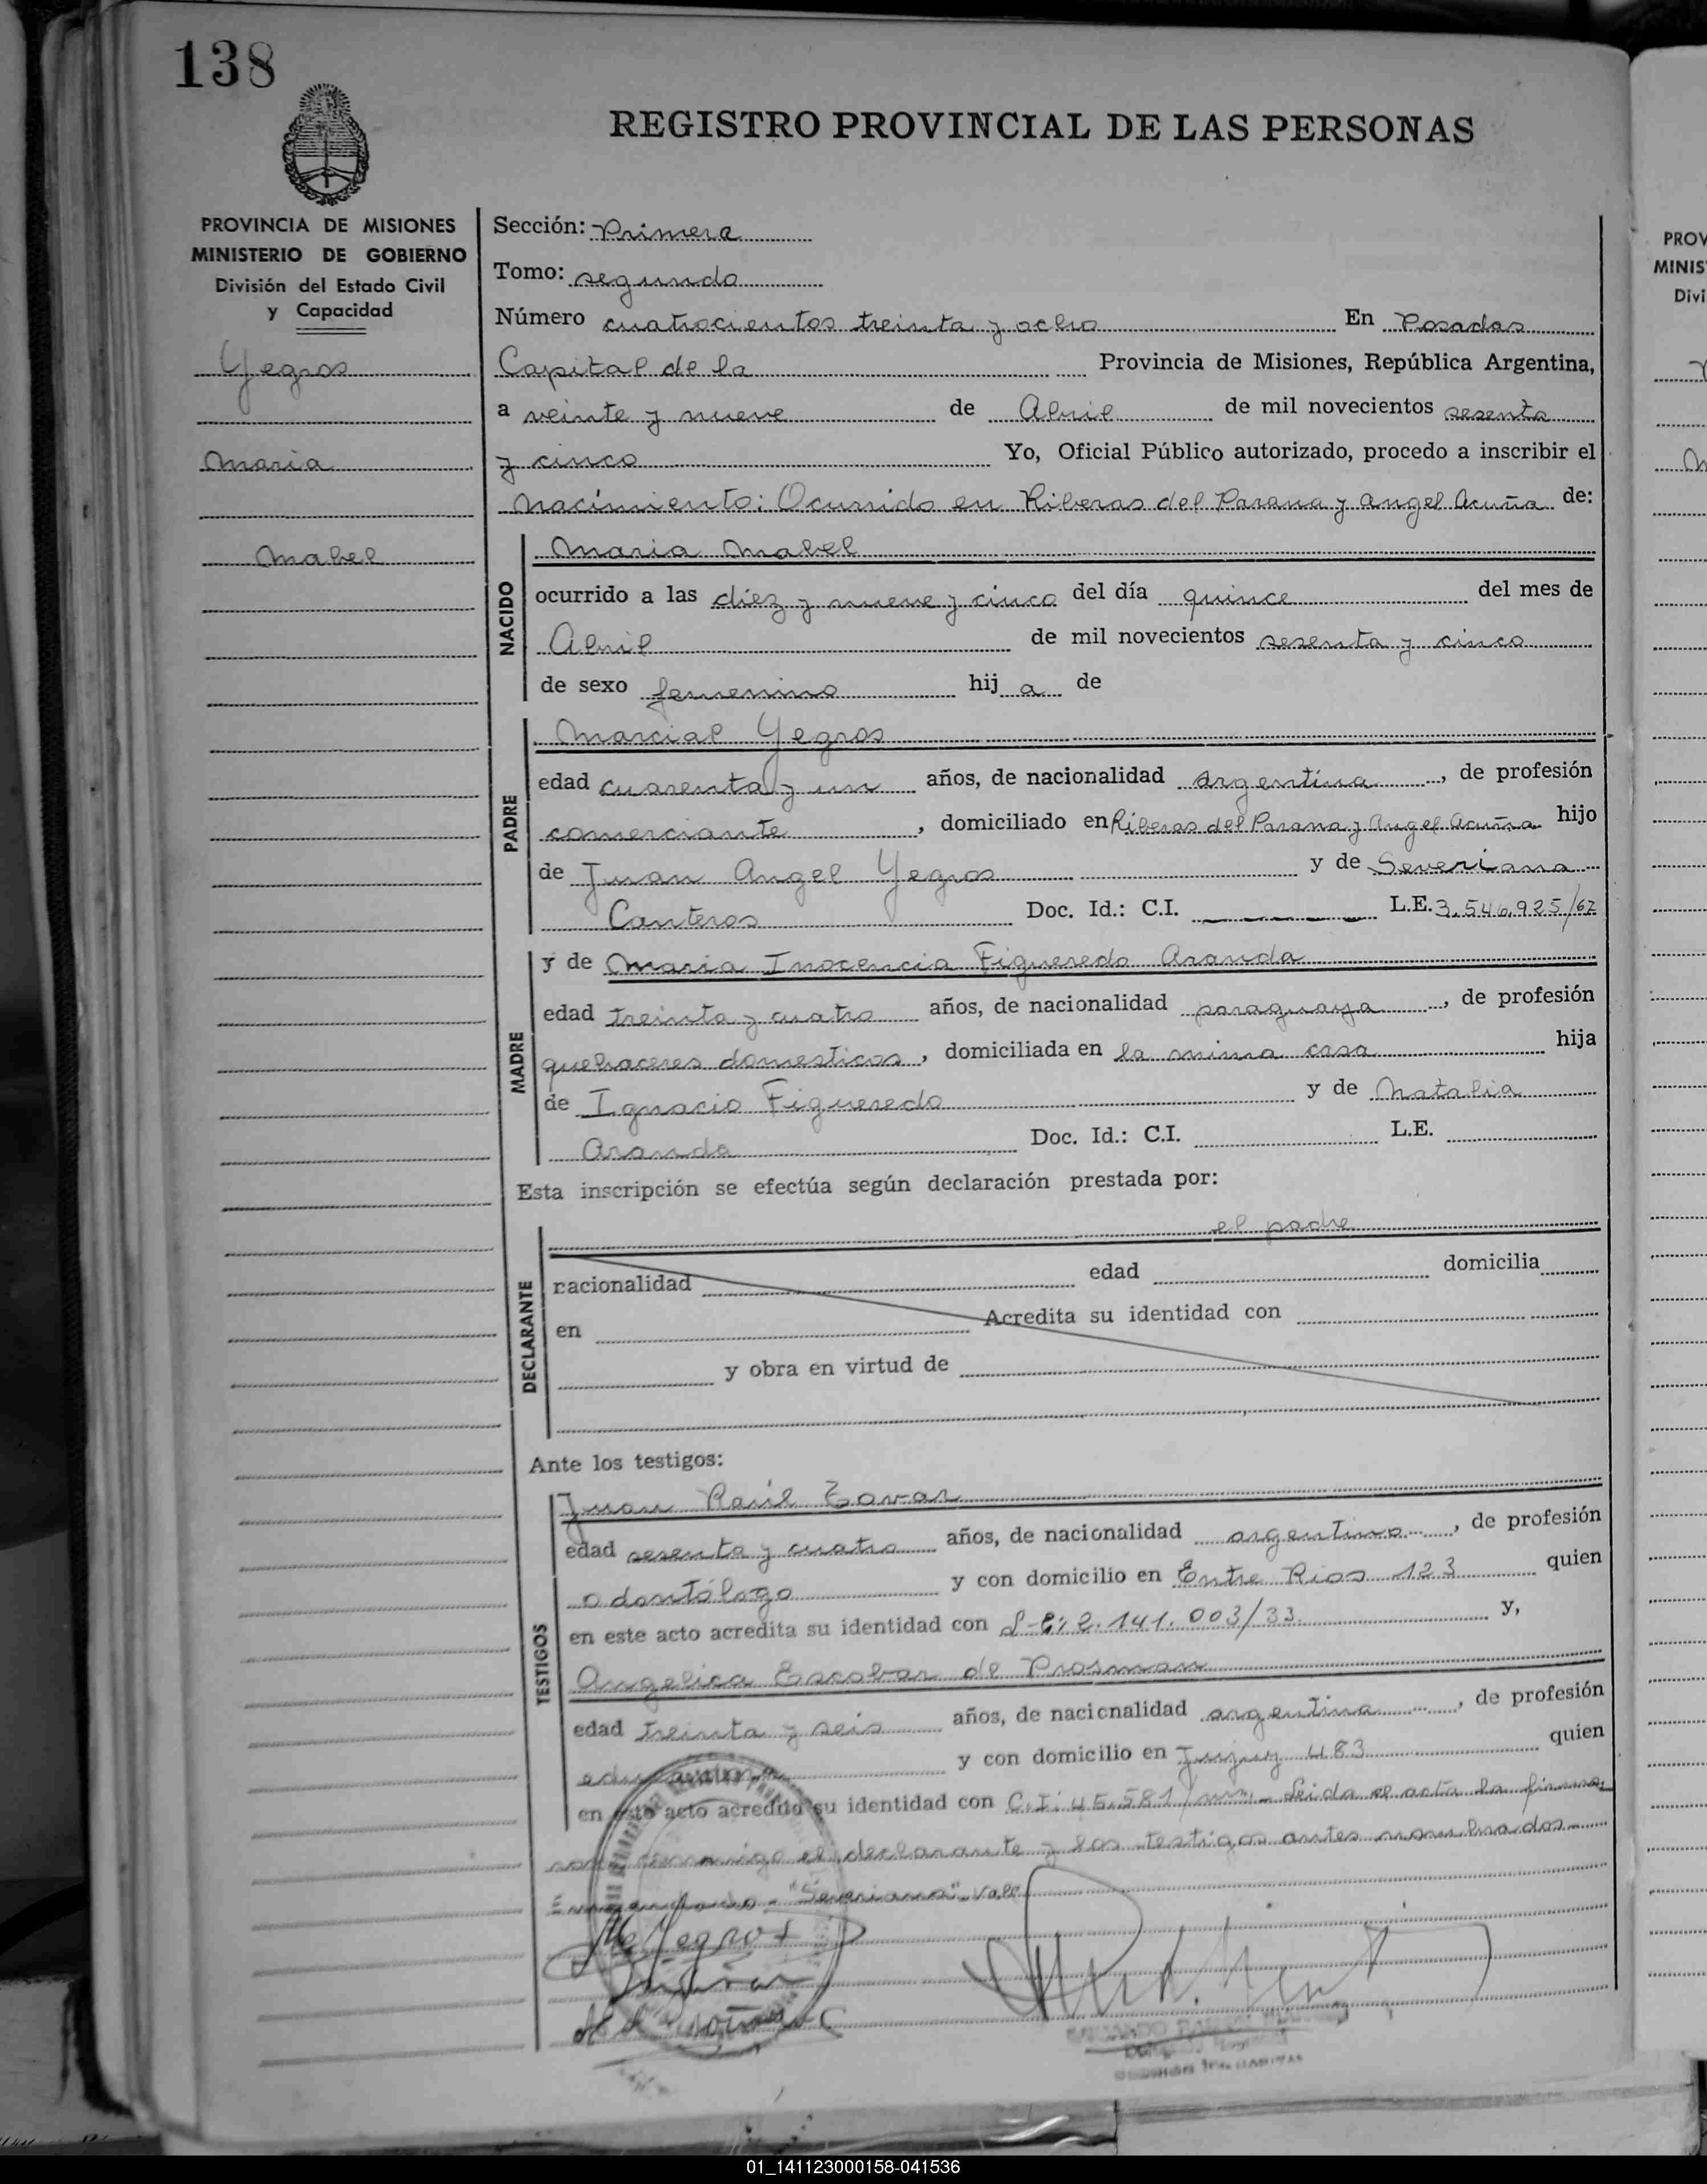 138
REGISTRO PROVINCIAL DE LAS PERSONAS
PROVINCIA DE MISIONES
MINISTERIO DE GOBIERNO
División del Estado Civil
y Capacidad
Yegros
Maria
Mabel
Sección: Primera
Tomo: segundo
Número cuatrocientos treinta y ocho En Posadas
Capital de la Provincia de Misiones, República Argentina,
a veinte y nueve de Abril de mil novecientos sesenta
y cinco Yo, Oficial Público autorizado, procedo a inscribir el
nacimiento: Ocurrido en Riberas del Parana y Angel Acuña de:
NACIDO
Maria Mabel
ocurrido a las diez y nueve y cinco del día quince del mes de
Abril de mil novecientos sesenta y cinco
de sexo femenino hij a de
PADRE
Marcial Yegros
edad cuarenta y un años, de nacionalidad argentina, de profesión
comerciante, domiciliado en Riberas del Parana y Angel Acuña hijo
de Juan Angel Yegros y de Severiana
Canteros Doc. Id.: C.I. L.E. 3.546.925/62
MADRE
y de Maria Inocencia Figueredo Aranda
edad treinta y cuatro años, de nacionalidad paraguaya, de profesión
quehaceres domesticos, domiciliada en la misma casa hija
de Ignacio Figueredo y de Natalia
Aranda Doc. Id.: C.I. L.E.
Esta inscripción se efectúa según declaración prestada por:
DECLARANTE
el padre
nacionalidad edad domicilia
en Acredita su identidad con
y obra en virtud de
Ante los testigos:
TESTIGOS
Juan Raúl Tovar
edad sesenta y cuatro años, de nacionalidad argentino, de profesión
odontólogo y con domicilio en Entre Rios 123 quien
en este acto acredita su identidad con L-E: 2.141.003/33 y,
Angelica Escobar de Prosman
edad treinta y seis años, de nacionalidad argentina, de profesión
y con domicilio en Jujuy 483 quien
en este acto acredita su identidad con C.I: 45.581/ Leida el acta la firman
conmigo el declarante y los testigos antes nombrados
Enmendado - "Severiana" - Vale
M Yegros
PROV
MINIS
Divi
01_141123000158-041536